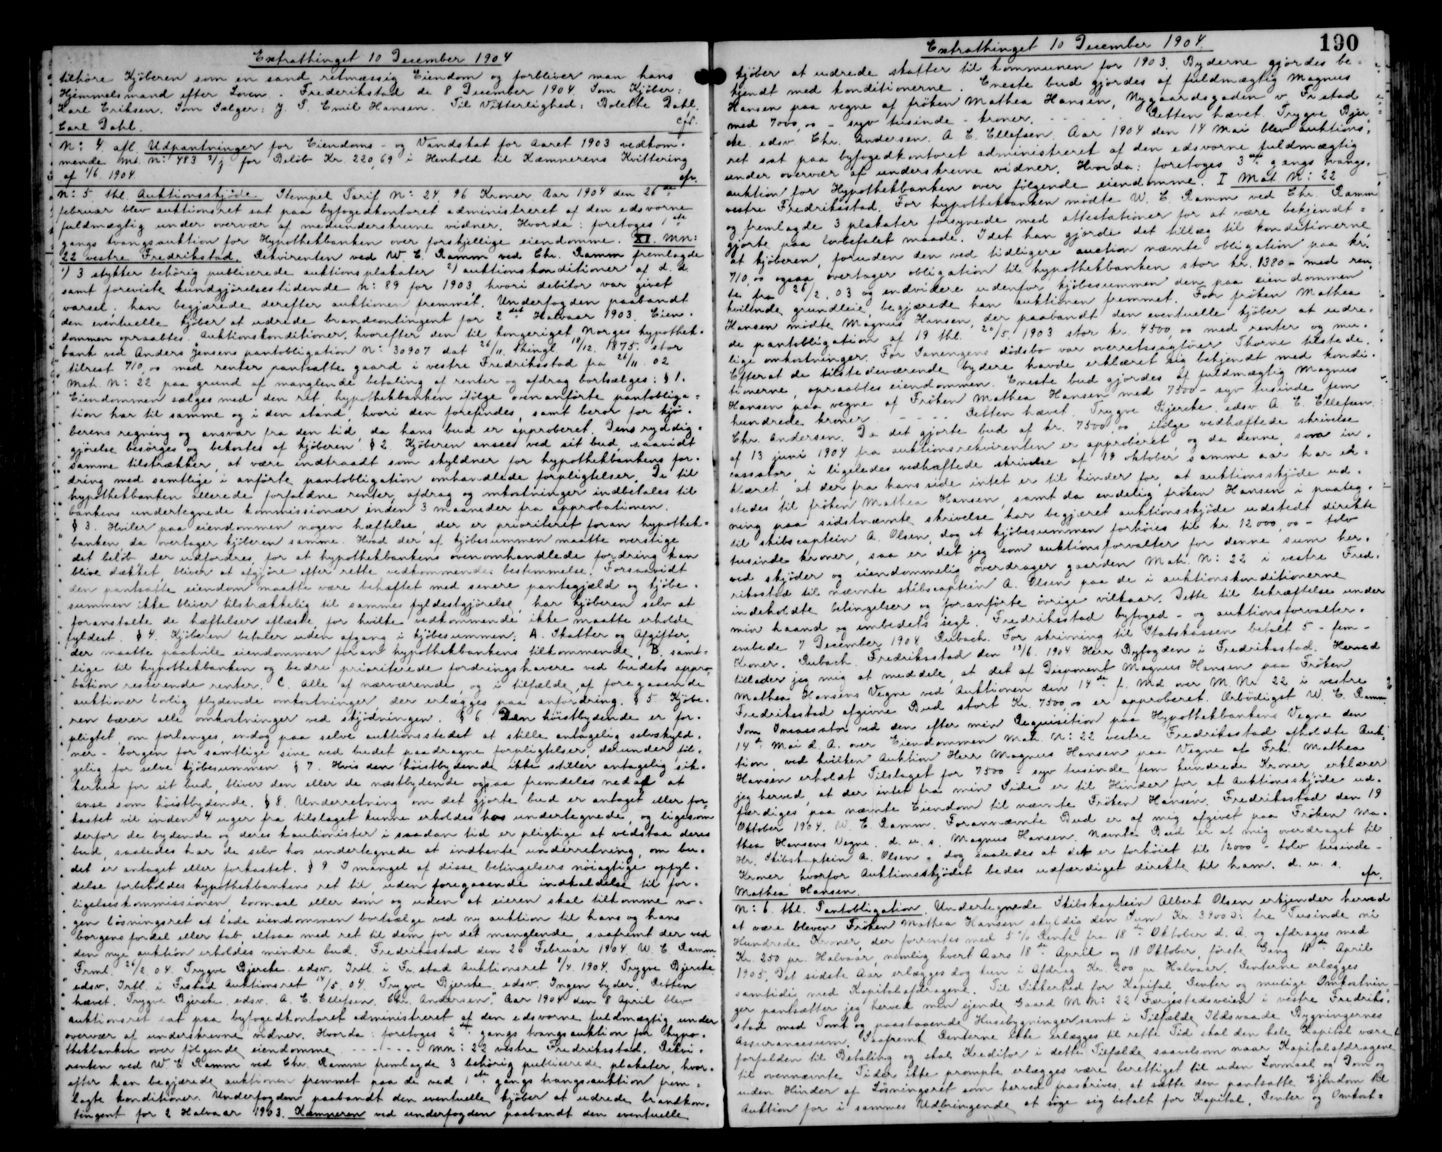 Extrathinget 10 December 1904
tilhøre Kjøberen som en sand retmæssig Eiendom og forbliver man hans
Hjemmelsmand efter Loven. - Frederikstad de 8 December 1904 Som Kjøber:
Karl Eriksen. Som Sælger: J. P. Emil Hansen. Til Vitterlighed: Bolette Dahl.
Carl Dahl. cfr.
N: 4 afl. Udpantninger for Eiendoms- og Vandskat for Aaret 1903 vedkom-
mende Mt. N: 483 for Beløb Kr. 220,69 i Henhold til Kæmnerens Kvittering
af 1/6 1904 cfr.
N: 5 thl. Auktionsskjøde. Stempel Tarif N: 24 96 Kroner Aar 1904 den 26de
februar blev auktionsret sat paa byfogedkontoret administreret af den edsvorne
fuldmægtig under overvær af medunderskrevne vidner. Hvorda: foretoges 1ste
gangs tvangsauktion for Hypothekbanken over forskjellige eiendomme. XI. Mn:
22 vestre Fredrikstad. Rekvirenten ved W. E. Ramm ved Chr. Ramm fremlagde
1) 3 stykker behørig publicerede auktionsplakater 2) auktionskonditioner af d. d.
samt foreviste kundgjørelsestidende N: 89 for 1903 hvori debitor var givet
varsel, han begjærede derefter auktionen fremmet. Underfogden paabandt
den eventuelle kjøber at udrede brandcontingent for 2det Halvaar 1903. Eien-
dommen opraabtes. Auktionskonditioner, hvorefter den til kongeriget Norges hypothek-
bank ved Anders Jensens pantobligation N: 30907 dat 26/11, thingl. 10/12. 1875, stor
tilrest 710,00 med renter pantsatte gaard i vestre Fredriksstad fra 26/11 02
Mat. N: 22 paa grund af manglende betaling af renter og afdrag bortsælges: § 1.
Eiendommen sælges med den ret, hypothekbanken ifølge ovenanførte pantobliga-
tion har til samme og i den stand, hvori den forefindes, samt beror for kjø-
berens regning og ansvar fra den tid da hans bud er approberet. Dens ryddig-
gjørelse besørges og bekostes af kjøberen § 2 Kjøberen ansees ved sit bud, saavidt
samme tilstrækker, at være indtraadt som skyldner for hypothekbankens for-
dring med samtlige i anførte pantobligation omhandlede forpligtelser. De til
hypothekbanken allerede forfaldne renter, afdrag og omkostninger indbetales til
bankens undertegnede kommissionær inden 3 maaneder fra approbationen.
§ 3. Hviler paa eiendommen nogen hæftelse, der er prioriteret foran hypothek-
banken, da overtager kjøberen samme. Hvad der af kjøbesummen maatte overstige
det beløb der udfordres, for at hypothekbankens ovenomhandlede fordring kan
blive dækket bliver at afgjøre efter rette vedkommendes bestemmelse. Forsaavidt
den pantsatte eiendom maatte være behæftet med senere pantegjæld og kjøbe-
summen ikke bliver tilstrækkelig til sammes fyldestgjørelse, har kjøberen selv at
foranstalte de hæftelser aflæste, for hvilke vedkommende ikke maatte erholde
fyldest. § 4. Kjøberen betaler uden afgang i kjøbesummen: A. Skatter og Afgifter
der maatte paahvile eiendommen foran hypothekbankens tilkommende, B. samt-
lige til hypothekbanken og bedre prioriterede fordringshavere ved budets appro-
bation resterende renter. C. Alle af nærværende og i tilfælde af foregaaende
auktioner lovlig flydende omkostninger, der erlægges paa anfordring. § 5 Kjøbe-
ren bærer alle omkostninger ved skjødningen. § 6 Den høistbydende er for-
pligtet, om forlanges, endog paa selve auktionsstedet at stille antagelig selvskyld-
ner-borgen for samtlige sine ved budet paadragne forpligtelser, derunder føl-
gelig for selve kjøbesummen § 7. Hvis den høistbydende ikke stiller antagelig sik-
kerhed for sit bud, bliver den eller de næstbydende ogsaa fremdeles nedad at
anse som høistbydende. § 8. Underretning om det gjorte bud er antaget eller for-
kastet vil inden 4 uger fra tilslaget kunne erholdes hos undertegnede, og ligesom
derfor de bydende og deres kautionister i saadan tid er pligtige at vedstaa deres
bud, saaledes har de selv hos undertegnede at indhente underretning, om bu-
det er antaget eller forkastet. § 9 I mangel af disse betingelsers nøiagtige opfyl-
delse forbeholdes hypothekbanken ret til, uden foregaaende indkaldelse til for-
ligelseskommissionen lovmaal eller dom og uden at eieren skal tilkomme no-
gen løsningsret at lade eiendommen bortsælge ved ny auktion til hans og hans
borgens fordel eller tab, altsaa med ret til dem for det manglende, saafremt der ved
den nye auktion erholdes mindre bud. Fredriksstad den 26 Februar 1904. W. E. Ramm
Freml. 26/2 04. Trygve Bjercke edsv. Irtl. i Fr.stad Auktionsret 8/4 1904. Trygve Bjercke
edsv. Irtl. i Frstad Auktionsret 14/5. 04. Trygve Bjercke edsv. Ingen byder. Retten
hævet. Trygve Bjercke. edsv. A. E. Ellefsen. Chr. Andersen. Aar 1904 den 8 April blev
auktionsret sat paa byfogedkontoret administreret af den edsvorne fuldmægtig under
overvær af underskrevne vidner. Hvorda: foretoges 2den gangs tvangsauktion for hypo-
thekbanken over følgende eiendomme - - - - - : Mn: 22 vestre Fredriksstad. Rekvi-
renten ved W E Ramm ved Chr. Ramm fremlagde 3 behørig publicerede plakater, hvor-
efter han begjærede auktionen fremmet paa de ved 1ste gangs tvangsauktion frem-
lagte konditioner. Underfogden paabandt den eventuelle kjøber at udrede brandkon-
tingent for 2 Halvaar 1903. Kæmneren ved underfogden paabandt den eventuelle
Extrathinget 10 December 1904. 190
kjøber at udrede skatter til kommunen for 1903. Byderne gjordes be-
kjendt med konditionerne. Eneste bud gjordes af fuldmægtig Magnus
Hansen paa vegne af frøken Mathea Hansen, Nygaardsgaden v Fr stad
med 7000,00 - syv tusinde - kroner. - - - - - Retten hævet. Trygve Bjer
cke edsv. Chr. Andersen. A. E. Ellefsen. Aar 1904 den 14 Mai blev auktions-
ret sat paa byfogedkontoret administreret af den edsvorne fuldmægtig
under overvær af underskrevne vidner. Hvorda: foretoges 3die gangs tvangs-
auktion for Hypothekbanken over følgende eiendomme. I Mat. N: 22
vestre Fredriksstad. For hypothekbanken mødte W. E. Ramm ved Chr. Ramm
og fremlagde 3 plakater forsynede med attestationer for at være bekjendt-
gjorte paa lovbefalet maade. Idet han gjorde det tillæg til konditionerne
at kjøberen, foruden den ved tidligere auction nævnte obligation paa kr.
710,00 ogsaa overtager obligation til hypothekbanken stor kr. 1380 - med ren-
te fra 26/2. 03 og endvidere udenfor kjøbesummen den paa eiendommen
hvilende grundleie, begjærede han auktionen fremmet. For frøken Mathea
Hansen mødte Magnus Hansen, der paabandt den eventuelle kjøber at udre-
de pantobligation af 19 thl. 20/5 1903 stor kr. 4500,00 med renter og mu-
lige omkostninger. For dødsbo var overretssagfører Thorne tilstede.
Efterat de tilstedeværende bydere havde erklæret sig bekjendt med kondi-
tionerne, opraabtes eiendommen. Eneste bud gjordes af fuldmægtig Magnus
Hansen paa vegne af Frøken Mathea Hansen med 7500 - syv tusinde fem
hundrede kroner - - - - Retten hævet. Trygve Bjercke. edsv A. E. Ellefsen.
Chr. Andersen. Da det gjorte bud af kr. 7500,00, ifølge vedhæftede skrivelse
af 13 juni 1904 fra auktionsrekvirenten er approberet og da denne, som in-
cassator, i ligeledes vedhæftede skrivelse af 19 oktober samme aar har er-
klæret, at der fra hans side intet er til hinder for, at auktionsskjøde ud-
stedes til frøken Mathea Hansen, samt da endelig frøken Hansen i paateg-
ning paa sidstnævnte skrivelse har begjæret auktionsskjøde udstedt direkte
til skibscaptein A. Olsen, dog at kjøbesummen forhøies til kr. 12000,00 - tolv
tusinde kroner, saa er det jeg som auktionsforvalter for denne sum her-
ved skjøder og eiendommelig overdrager gaarden Matr. N: 22 i vestre Fred-
rikstad til nævnte skibscaptein A. Olsen paa de i auktionskonditionerne
indeholdte betingelser og foranførte øvrige vilkaar. Dette til bekræftelse under
min haand og embedets segl. Fredriksstad byfoged- og auktionsforvalter-
embede 7 December 1904. Rubach. For skrivning til Statskassen betalt 5 - fem -
Kroner. Rubach. Fredriksstad den 13/6. 1904 Herr Byfogden i Fredriksstad. Herved
tillader jeg mig at meddele, at det af Disponent Magnus Hansen paa Frøken
Mathea Hansens Vegne ved Auktionen den 14de f. Md over M Nr 22 i vestre
Fredriksstad afgivne Bud stort Kr. 7500,00 er approberet. Ærbødigst W. E. Ramm
Som Incassator ved den efter min Requisition paa Hypothekbankens Vegne den
14de Mai d. A. over Eiendommen Mat. N: 22 vestre Fredriksstad afholdte Auk-
tion, ved hvilken Auktion Herr Magnus Hansen paa Vegne af Frk. Mathea
Hansen erholdt Tilslaget for 7500 - syv tusinde fem hundrede Kroner, erklærer
jeg herved, at der intet fra min Side er til Hinder for, at Auktionsskjøde ud-
færdiges paa nævnte Eiendom til nævnte Frøken Hansen. Fredriksstad den 19
Oktober 1904. W. E. Ramm. Forannævnte Bud er af mig afgivet paa Frøken Ma-
thea Hansens Vegne. d. u. s. Magnus Hansen. Nævnte Bud er af mig overdraget til
Hr. Skibskaptein A. Olsen, dog saaledes at det er forhøiet til 12000 - tolv tusinde -
Kroner hvorfor Auktionsskjødet bedes udfærdiget direkte til ham. d. u. s.
Mathea Hansen. cfr.
N: 6. thl. Pantobligation. Undertegnede Skibskaptein Albert Olsen erkjender herved
at være bleven Frøken Mathea Hansen skyldig den Sum Kr. 3900 D: tre Tusinde ni
Hundrede Kroner, der forrentes med 5% Rente fra 18de Oktober d. A. og afdrages med
Kr. 250 pr. Halvaar, nemlig hvert Aars 18de April og 18 Oktober, første Gang 18de April
1905. Det sidste Aar erlægges dog kun i Afdrag Kr. 200 pr Halvaar. Renterne erlægges
samtidig med Kapitalafdragene. Til Sikkerhed for Kapital, Renter og mulige Omkostnin-
ger pantsætter jeg herved min eiende Gaard M N: 22 Færjestedsveien i vestre Fredriks-
stad med Tomt og paastaaende Husebygninger samt i Tilfælde Ildsvaade Bygningernes
Assurancesum. Saafremt Renterne ikke erlægges til rette Tid skal den hele Kapital være
forfalden til Betaling og skal Kreditor i dette Tilfælde saavelsom naar Kapitalafdragene
til ovennævnte Tider ikke prompte erlægges være berettiget til uden Lovmaal og Dom og
uden Hinder af Løsningsret som herved fraskrives, at sætte den pantsatte Eiendom til
Auktion for i sammes Udbringende at søge sig betalt for Kapital, Renter og Omkost-